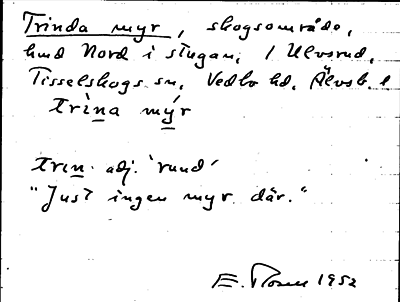 Trinda myr, skogsområde,
hmd Nord i stugan, / Ulvsrud,
Tisselskogs sn, Vedbo hd, Älvsb. l
trìna mýr
trin adj. 'rund'
"Just ingen myr där."
E. Rosen 1952